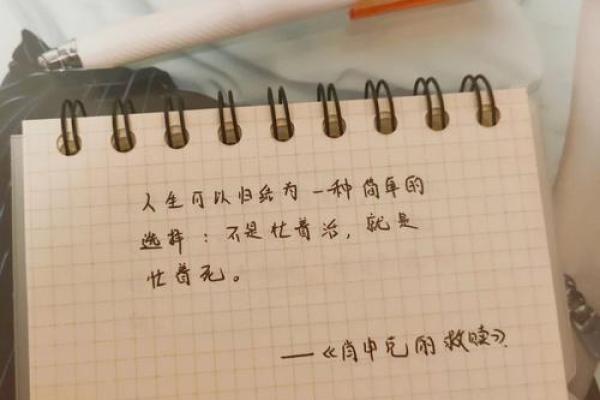 人生可以归结为一种简单的
选择：不是忙着治，就是
忙着死。
——《肖申克的救赎》